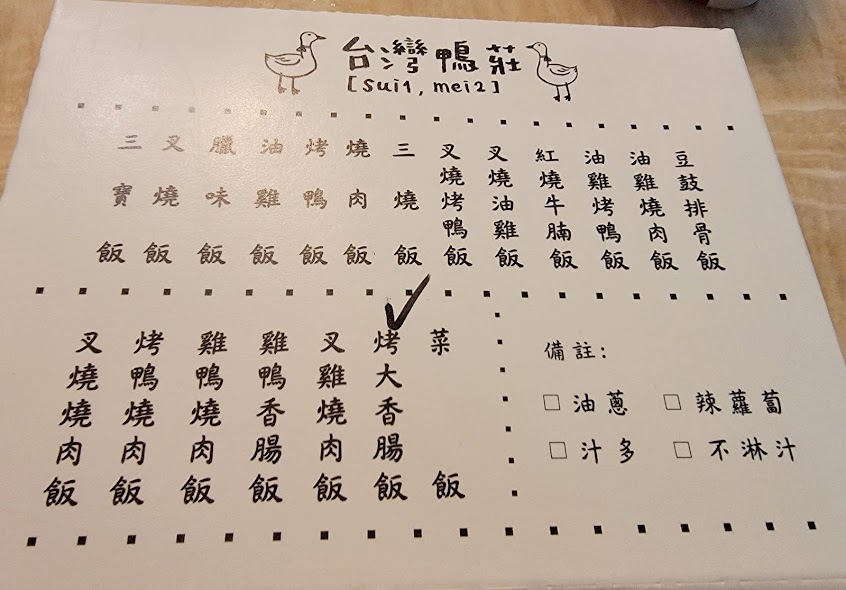 台灣鴨莊
[sui1, mei2]
三寶飯
叉燒飯
臘味飯
油雞飯
烤鴨飯
燒肉飯
三燒飯
叉燒烤鴨飯
叉燒油雞飯
紅燒牛腩飯
油雞烤鴨飯
油雞燒肉飯
豆鼓排骨飯
叉燒燒肉飯
烤鴨燒肉飯
雞鴨燒肉飯
雞鴨香腸飯
叉雞燒肉飯
烤大香腸飯
菜飯
備註:
□ 油蔥
□ 辣蘿蔔
□ 汁多
□ 不淋汁